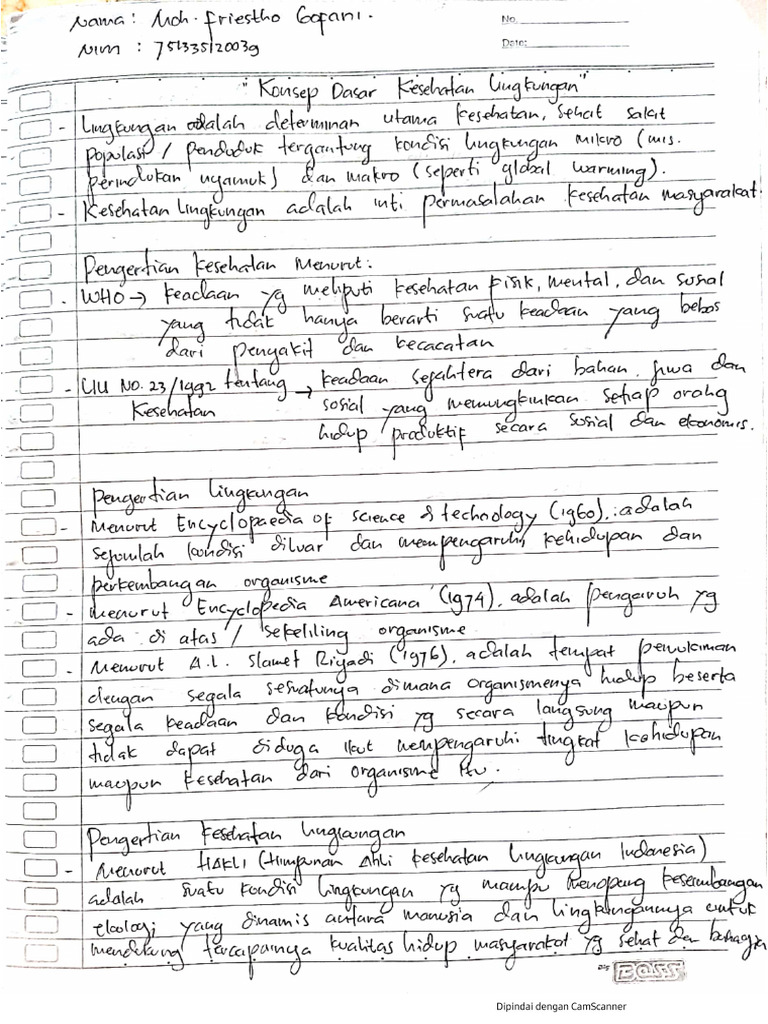 Nama : Moh. Friestho Gofani.
No.
NIM : 751335120039
Date:
"Konsep Dasar Kesehatan Lingkungan"
- Lingkungan adalah determinan utama kesehatan, sehat sakit
populasi / penduduk tergantung kondisi lingkungan mikro (mis.
perindukan nyamuk) dan makro (seperti global warming).
- Kesehatan Lingkungan adalah inti permasalahan kesehatan masyarakat.
Pengertian Kesehatan Menurut :
- WHO → Keadaan yg meliputi kesehatan fisik, mental, dan sosial
yang tidak hanya berarti suatu keadaan yang bebas
dari penyakit dan kecacatan
- UU No. 23/1992 tentang → keadaan sejahtera dari bahan, jiwa dan
Kesehatan sosial yang memungkinkan setiap orang
hidup produktif secara sosial dan ekonomis.
Pengertian Lingkungan
- Menurut Encyclopaedia of science & technology (1960), adalah
sejumlah kondisi diluar dan mempengaruhi kehidupan dan
perkembangan organisme
- menurut Encyclopedia Americana (1974), adalah pengaruh yg
ada di atas / sekeliling organisme
- Menurut A.L. Slamet Riyadi (1976), adalah tempat pemukiman
dengan segala sesuatunya dimana organismenya hidup beserta
segala keadaan dan kondisi yg secara langsung maupun
tidak dapat diduga ikut mempengaruhi tingkat kehidupan
maupun kesehatan dari organisme itu.
Pengertian Kesehatan Lingkungan
- Menurut HAKLI (Himpunan Ahli Kesehatan Lingkungan Indonesia)
adalah suatu kondisi lingkungan yg mampu menopang keseimbangan
ekologi yang dinamis antara manusia dan lingkungannya untuk
mendukung tercapainya kualitas hidup masyarakat yg sehat dan bahagia
BOSS
Dipindai dengan CamScanner